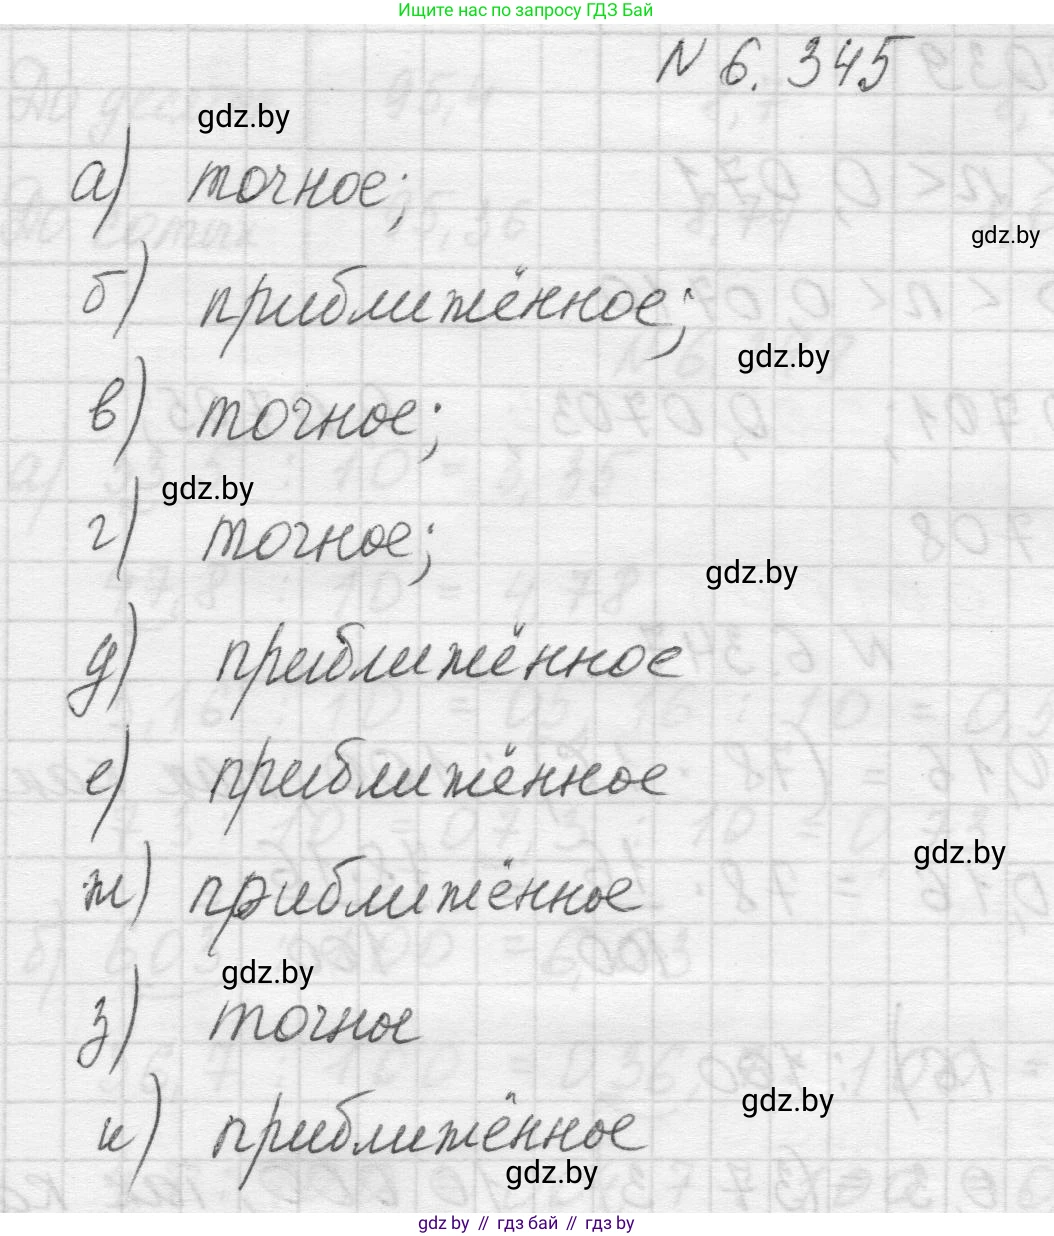 Ищите нас по запросу ГДЗ Бай
N 6.345
gdz.by
а) точное;
gdz.by
б) приближённое;
gdz.by
в) точное;
gdz.by
г) точное;
gdz.by
д) приближённое
е) приближённое
gdz.by
ж) приближённое
gdz.by
з) точное
gdz.by
и) приближённое
gdz.by
gdz by // гдз бай // гдз by